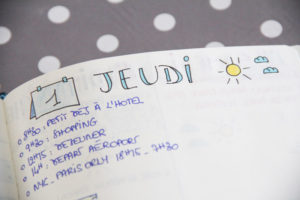 1 JEUDI
8H30 : PETIT DEJ À L'HOTEL
9H30 : SHOPPING
12H15 : DEJEUNER
14H : DEPART AÉROPORT
NYC - PARIS ORLY 18H15 - 7H30